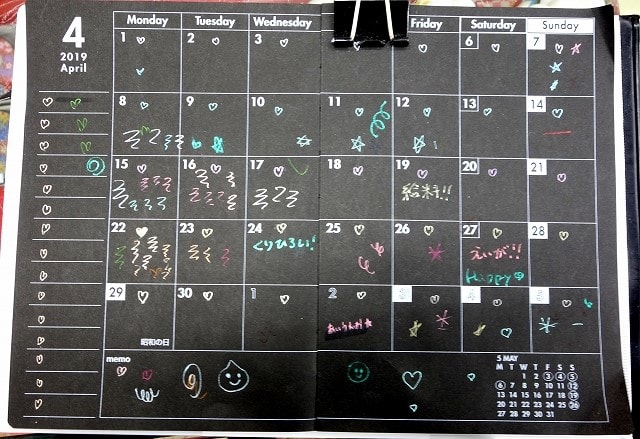 4
2019
April
Monday Tuesday Wednesday Friday Saturday Sunday
1 2 3 6 7
8 9 10 11 12 13 14
15 16 17 18 19 20 21
給料!!
22 23 24 25 26 27 28
くりひろい! えいが!!
Happy
29 30 1 2
昭和の日
memo
5 MAY
M T W T F S S
1 2 3 4 5
6 7 8 9 10 11 12
13 14 15 16 17 18 19
20 21 22 23 24 25 26
27 28 29 30 31